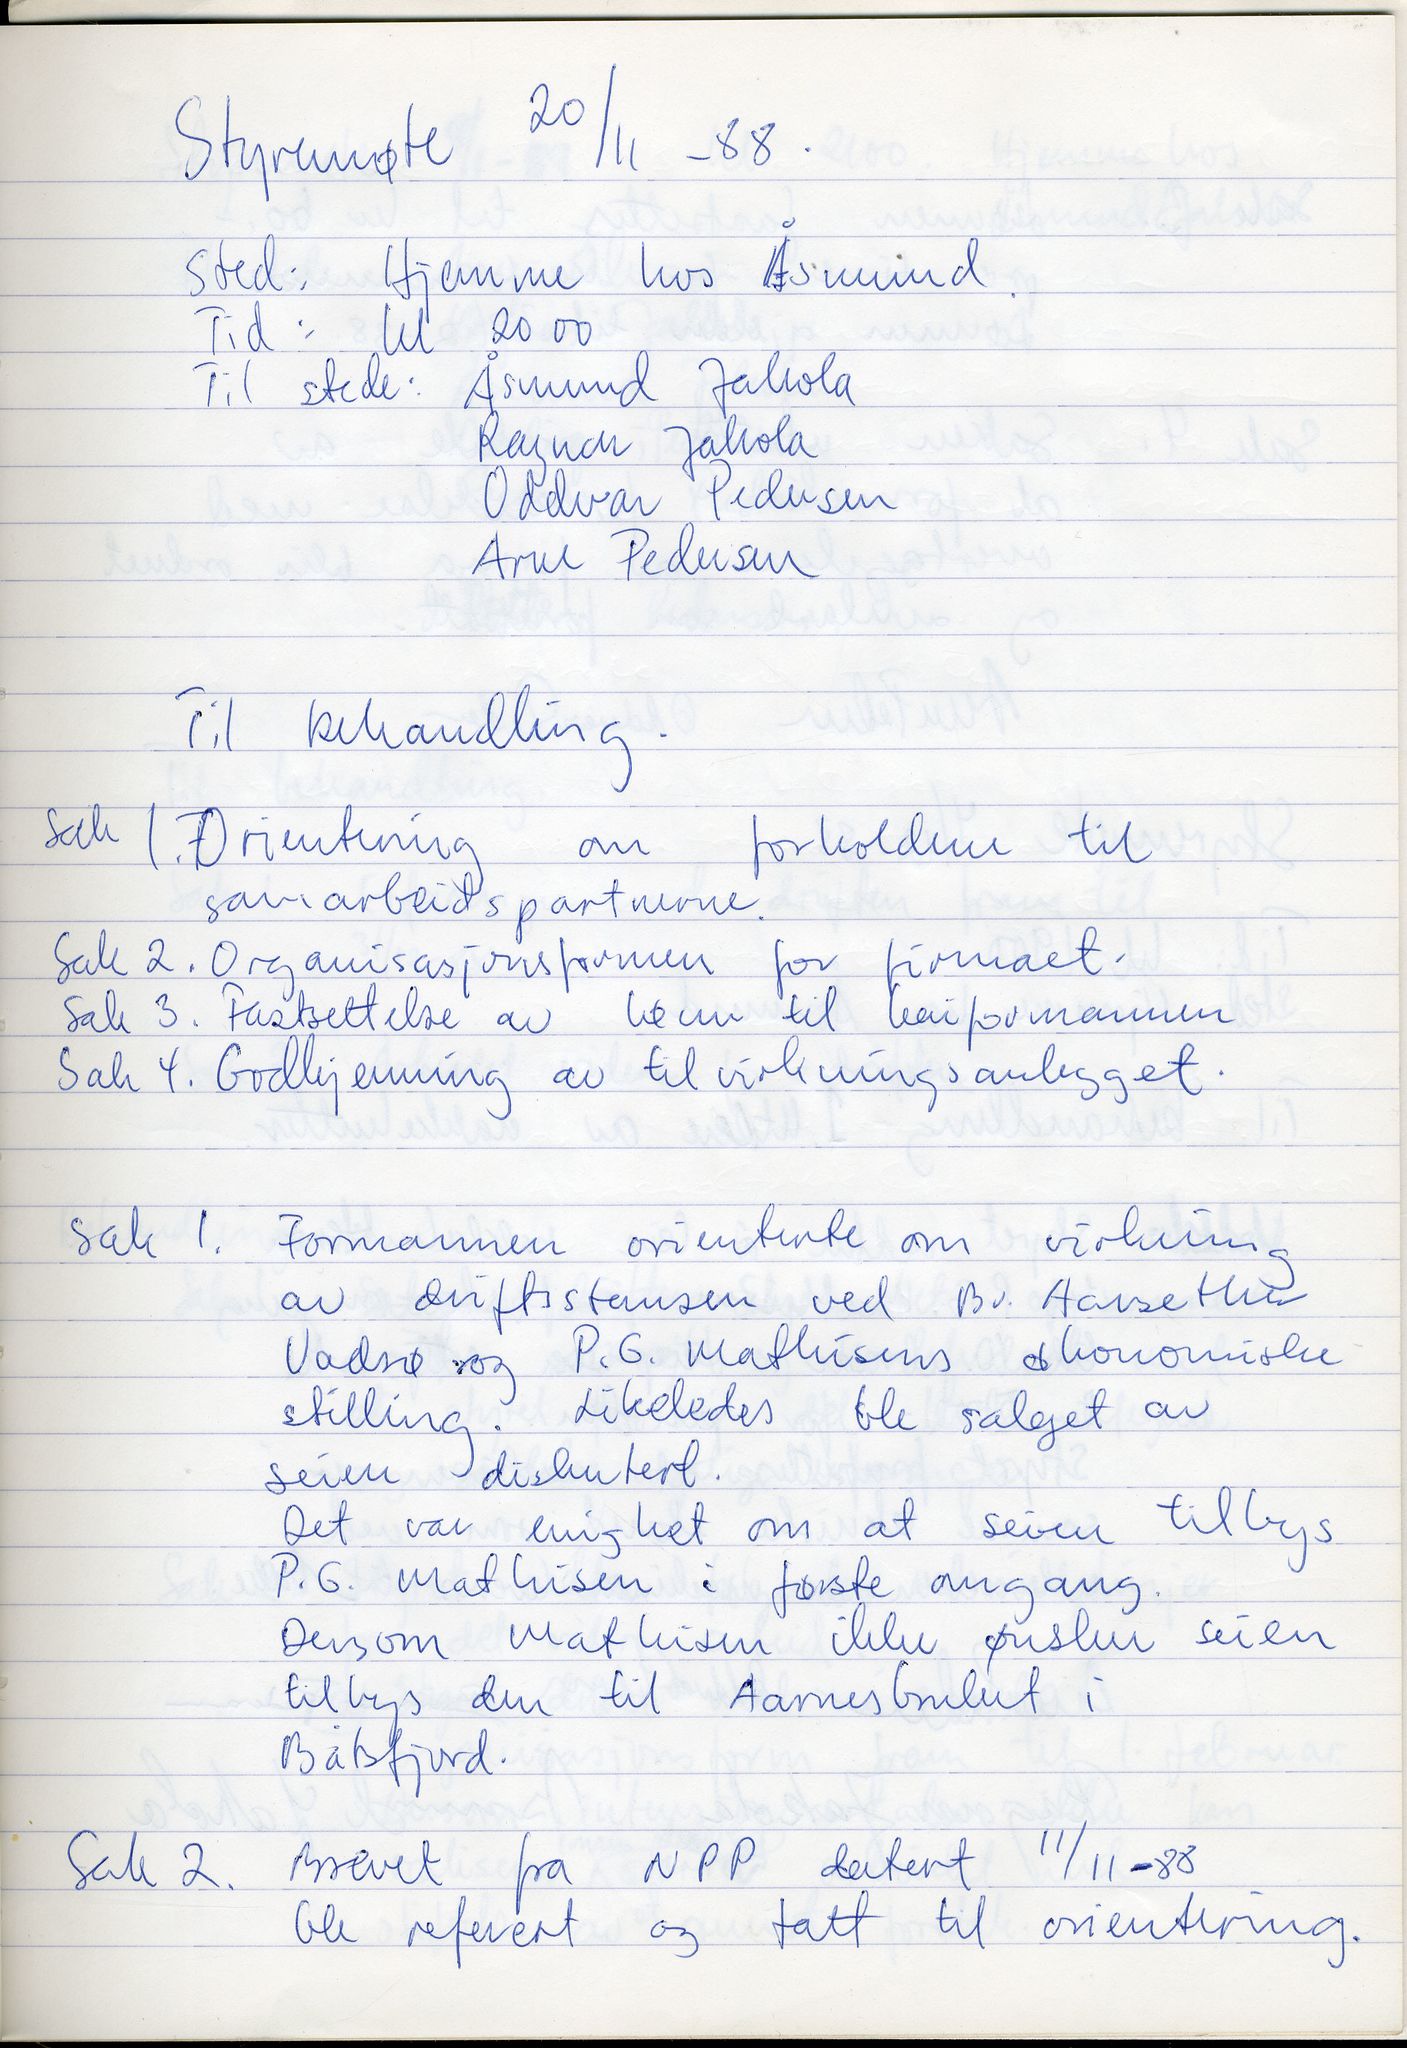 Styremøte 20/11 -88.
Sted: Hjemme hos Åsmund.
Tid: kl 20 00
Til stede: Åsmund Jakola
Ragnar Jakola
Oddvar Pedersen
Arne Pedersen
Til behandling.
Sak 1. Orientering om forholdene til
samarbeidspartnerne.
Sak 2. Organisasjonsformen for firmaet.
Sak 3. Fastsettelse av lønn til kaiformannen
Sak 4. Godkjenning av tilvirkningsanlegget.
Sak 1. Formannen orienterte om virkning
av driftsstansen ved Br. Aarsether
Vadsø og P.G. Mathisens økonomiske
stilling. Likeledes ble salget av
seien diskutert.
Det var enighet om at seien tilbys
P.G. Mathisen i første omgang.
Dersom Mathisen ikke ønsker seien
tilbys den til Aarnesbruket i
Båtsfjord.
Sak 2. Brevet fra NPP datert 11/11-88
ble referert og tatt til orientering.